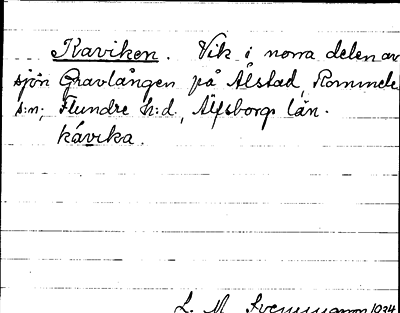 Kaviken. Vik i norra delen av
sjön Gravlången på Ålstad, Rommele
s:n, Flundre h:d, Älfsborgs län.
kávika.
L. M. Svennungsson 1934